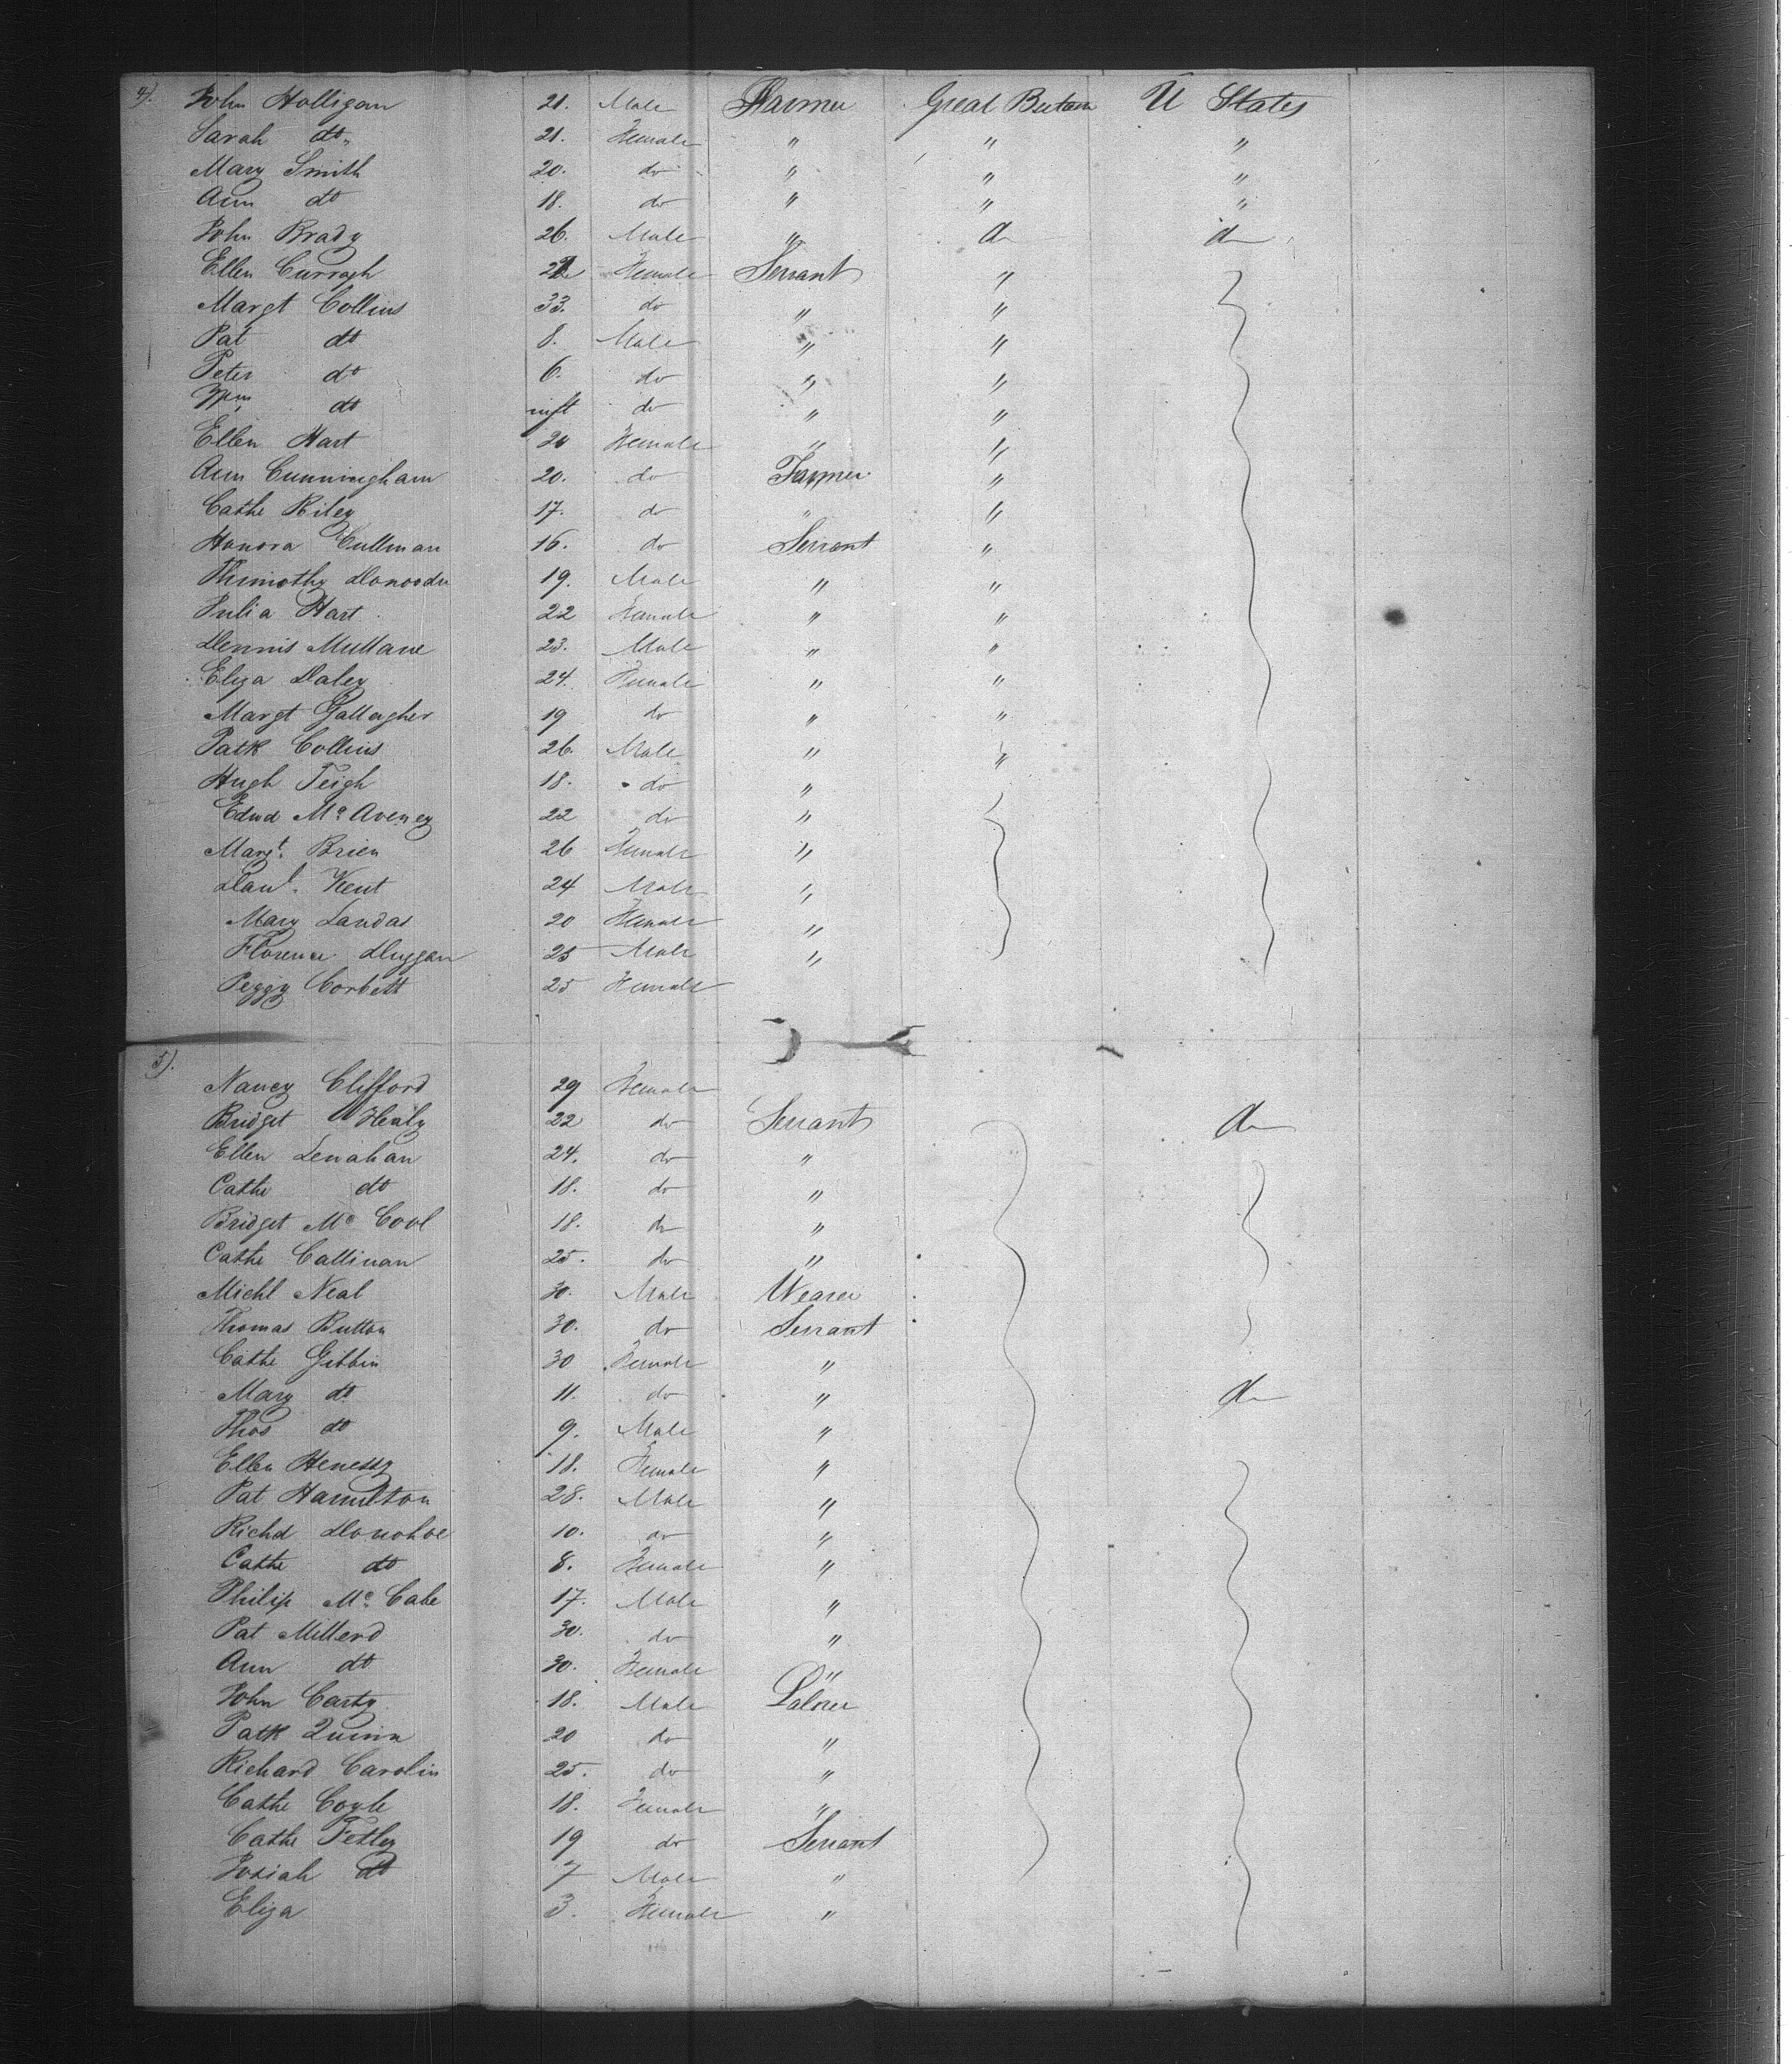 4).
John Halligan 21. Male Farmer Great Britain U States
Sarah do " 21. Female " " "
Mary Smith 20. do " " "
Ann do 18. do " " "
John Brady 26. Male " do do
Ellen Curragh Female Servant "
Margt Collins 33. do " "
Pat do 8. Male " "
Peter do 6. do " "
Wm do inft do " "
Ellen Hart 20 Female " "
Ann Cunningham 20. do Farmer "
Cathe Riley 17. do " "
Honora Cullinan 16. do Servant "
Thimothy 19. Male " "
Julia Hart 22 Female " "
Dennis Mullane 23. Male " "
Eliza Daley 24. Female " "
Margt Gallagher 19 do " "
Patk Collins 26. Male " "
Hugh Feigh 18. do "
Edwd Mc Aveney 22 do "
Margt. Brien 26 Female "
Danl. Kent 24 Male "
Mary Landas 20 Female "
Florence Duggan 25 Male "
Peggy Corbett 25 Female
5).
Nancy Clifford 29 Female
Bridget Healy 22 do Servant do
Ellen Lenahan 24. do "
Cathe do 18. do "
Bridget Mc Cool 18. do "
Cathe Callinan 25. do "
Michl Neal 30. Male Weaver
Thomas Button 30. do Servant
Cathe Gibbin 30 Female "
Mary do 11. do " do
Thos do 9. Male "
Ellen Henessy 18. Female "
Pat Hamilton 28. Male "
Richd Donohoe 10. do "
Cathe do 8. Female "
Philip Mc Cabe 17. Male "
Pat Millerd 30. do "
Ann do 30. Female "
John Carty 18. Male Laborer
Patk Quinn 20 do "
Richard Carolin 25. do "
Cathe Coyle 18. Female "
Cathe Fetley 19 do Servant
Josiah do 7 Male "
Eliza 3. Female "